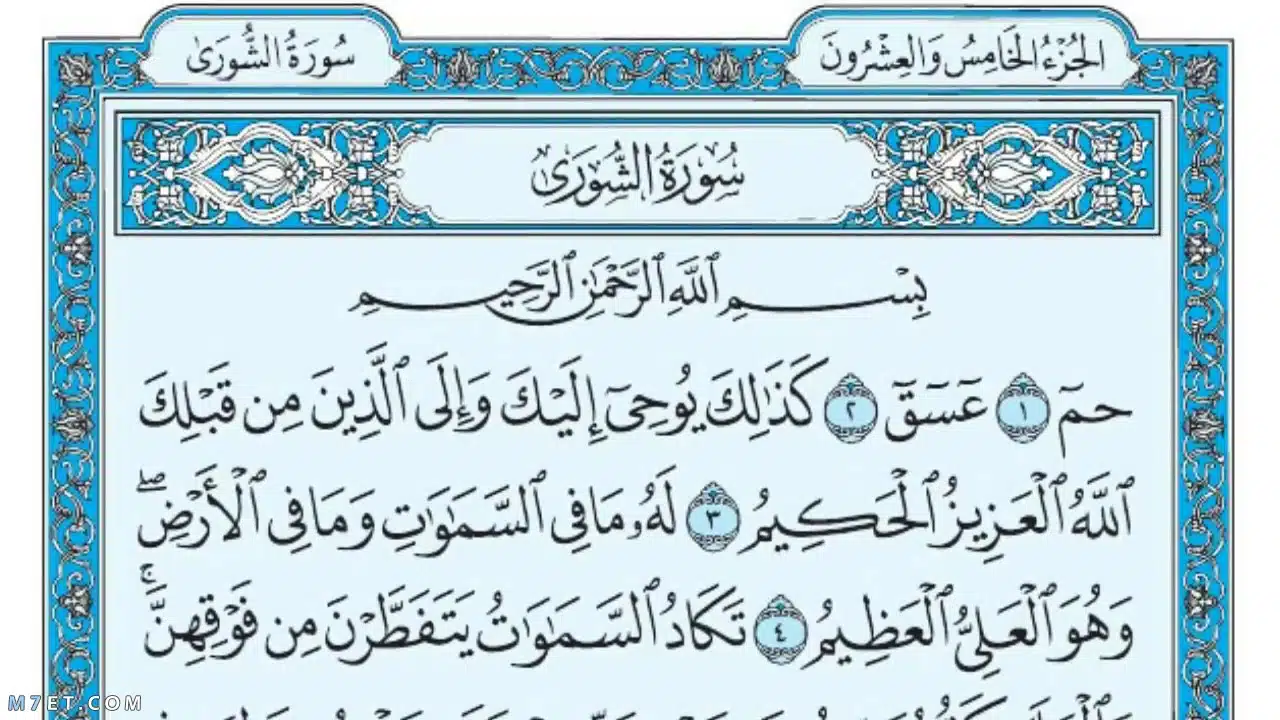 الجزء الخامس والعشرون
سورة الشورى
سُورَةُ الشُّورَىٰ
بِسْمِ ٱللَّهِ ٱلرَّحْمَٰنِ ٱلرَّحِيمِ
حمٓ ١ عٓسٓقٓ ٢ كَذَٰلِكَ يُوحِىٓ إِلَيْكَ وَإِلَى ٱلَّذِينَ مِن قَبْلِكَ
ٱللَّهُ ٱلْعَزِيزُ ٱلْحَكِيمُ ٣ لَهُۥ مَا فِى ٱلسَّمَٰوَٰتِ وَمَا فِى ٱلْأَرْضِۖ
وَهُوَ ٱلْعَلِىُّ ٱلْعَظِيمُ ٤ تَكَادُ ٱلسَّمَٰوَٰتُ يَتَفَطَّرْنَ مِن فَوْقِهِنَّۚ
M7ET.COM